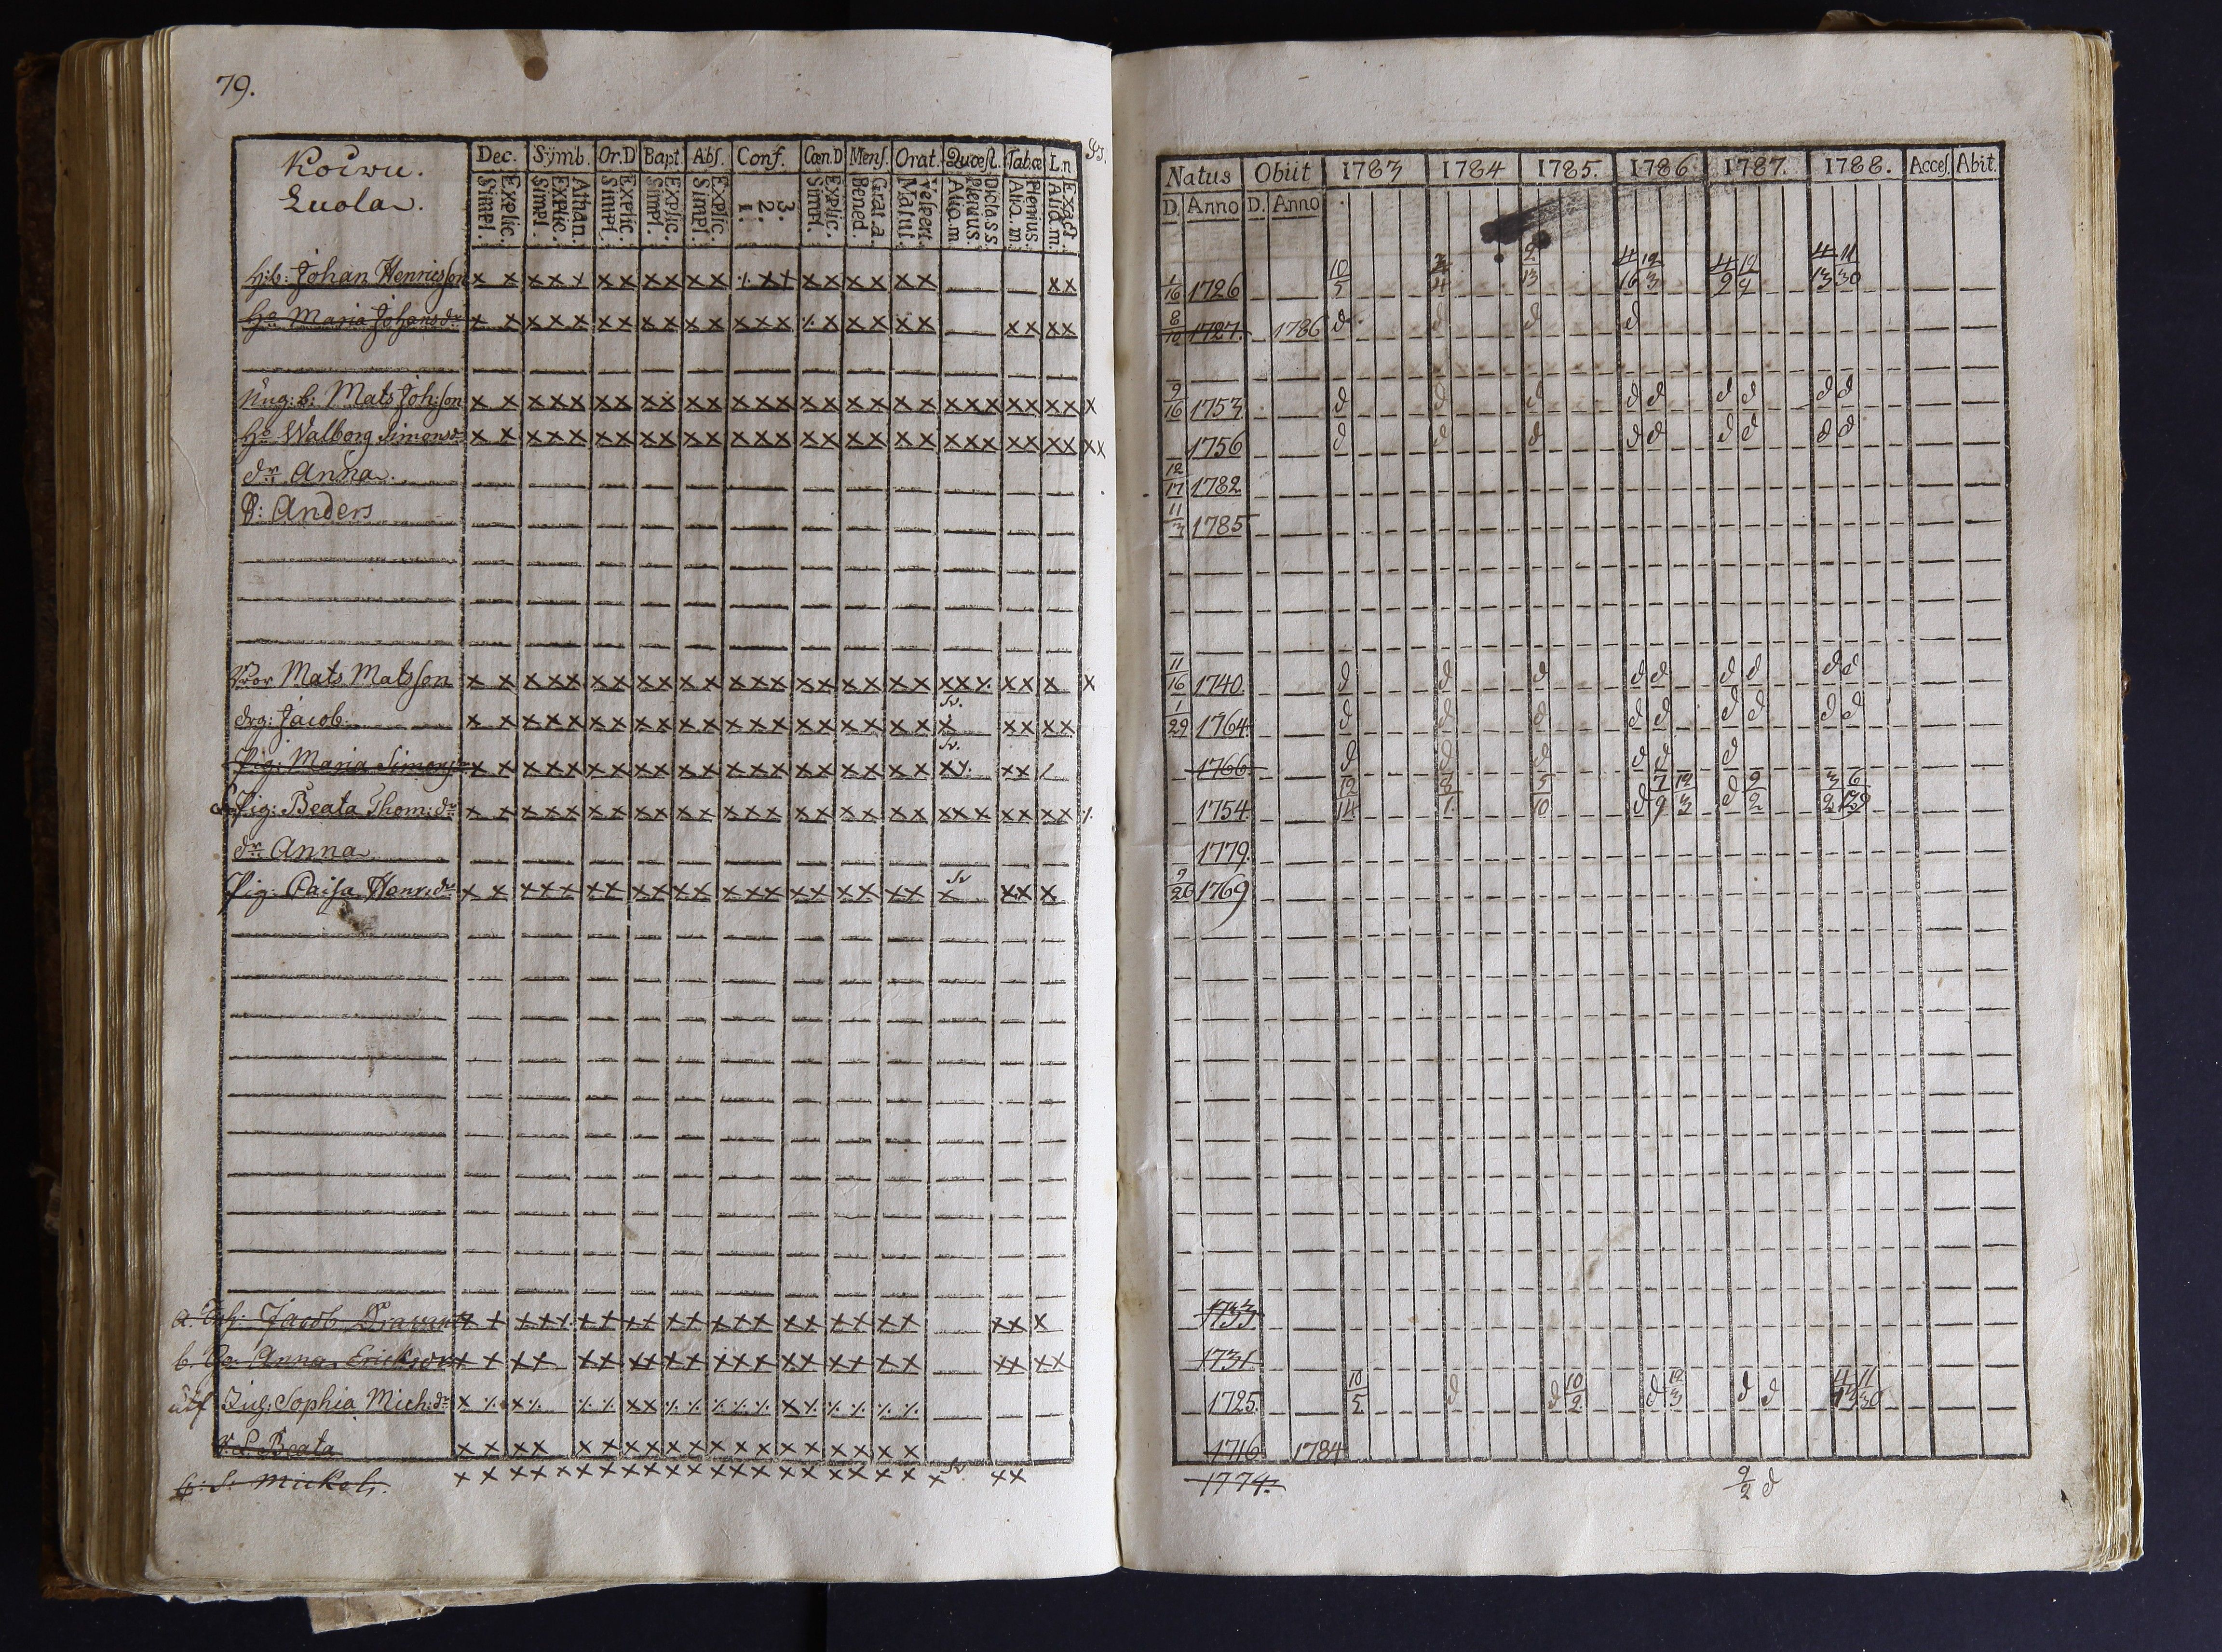 79.
Koiwu.
Luola.
Dec. Symb. Or.D Bapt. Abs. Conf. Cœn.D Mens. Orat. Quæst. Tab.œ L.n
Explic. Simpl. Athan. Explic. Simpl. Explic. Simpl. Explic. Simpl. Explic. Simpl. 3. 2. 1. Explic. Simpl. Grat.a Bened. Vespert. Matut. Dicta.s.s Plenius. Aliq.m. Plenius. Aliq.m. Exact Aliq.m.
Natus Obiit 1783 1784 1785. 1786. 1787. 1788. Acces. Abit.
D. Anno D. Anno
h:b: Johan Henricsson x x x x x x x x x x x x x x x x x x x x 1/16 1726 10/5 3/4 2/13 4/16 12/3 4/9 4/13 11/30
H:a Maria Johansdr x x x x x x x x x x x x x x x x x x x x x x x 8/10 1727. 1786 d d d d
Ung: b: Mats Joh:son x x x x x x x x x x x x x x x x x x x x x x x x x x x x 9/16 1753 d d d d d d d d d
H:u Walborg Simonsdr x x x x x x x x x x x x x x x x x x x x x x x x x x x x x 1756 d d d d d d d d d
dr Anna 12/17 1782
S: Anders 11/3 1785
Mats Matsson x x x x x x x x x x x x x x x x x x x x x x x x x 11/16 1740. d d d d d d d d d
drg: Jacob x x x x x x x x x x x x x x x x x x x x Sv. x x x x x 1/29 1764. d d d d d d d d d
Pig: Maria Simonsdr x x x x x x x x x x x x x x x x x x x x Sv. x x x 1766. d d d d d d
Pig: Beata Thom:dr x x x x x x x x x x x x x x x x x x x x x x x x x x x 1754. 12/14 3/10 d 7/9 12/3 d 9/2 3/2 6
dr Anna 1779.
Pig: Caisa Henr:dr x x x x x x x x x x x x x x x x x x x x Sv x x x x 9/20 1769
a. Jacob x x x x x x x x x x x x x x x x x x x x x x x 1733.
b. Anna Ericksdr x x x x x x x x x x x x x x x x x x x x x x x 1731
Sophia Mich:dr x x x x x 1725. 10/5 d d 10/2 d 12/3 d d 4/13 11/30
Beata x x x x x x x x x x x x x x x x x x x 1716 1784
Mickel x x x x x x x x x x x x x x x x x x x x Sv. x x x 1774. 9/2 d